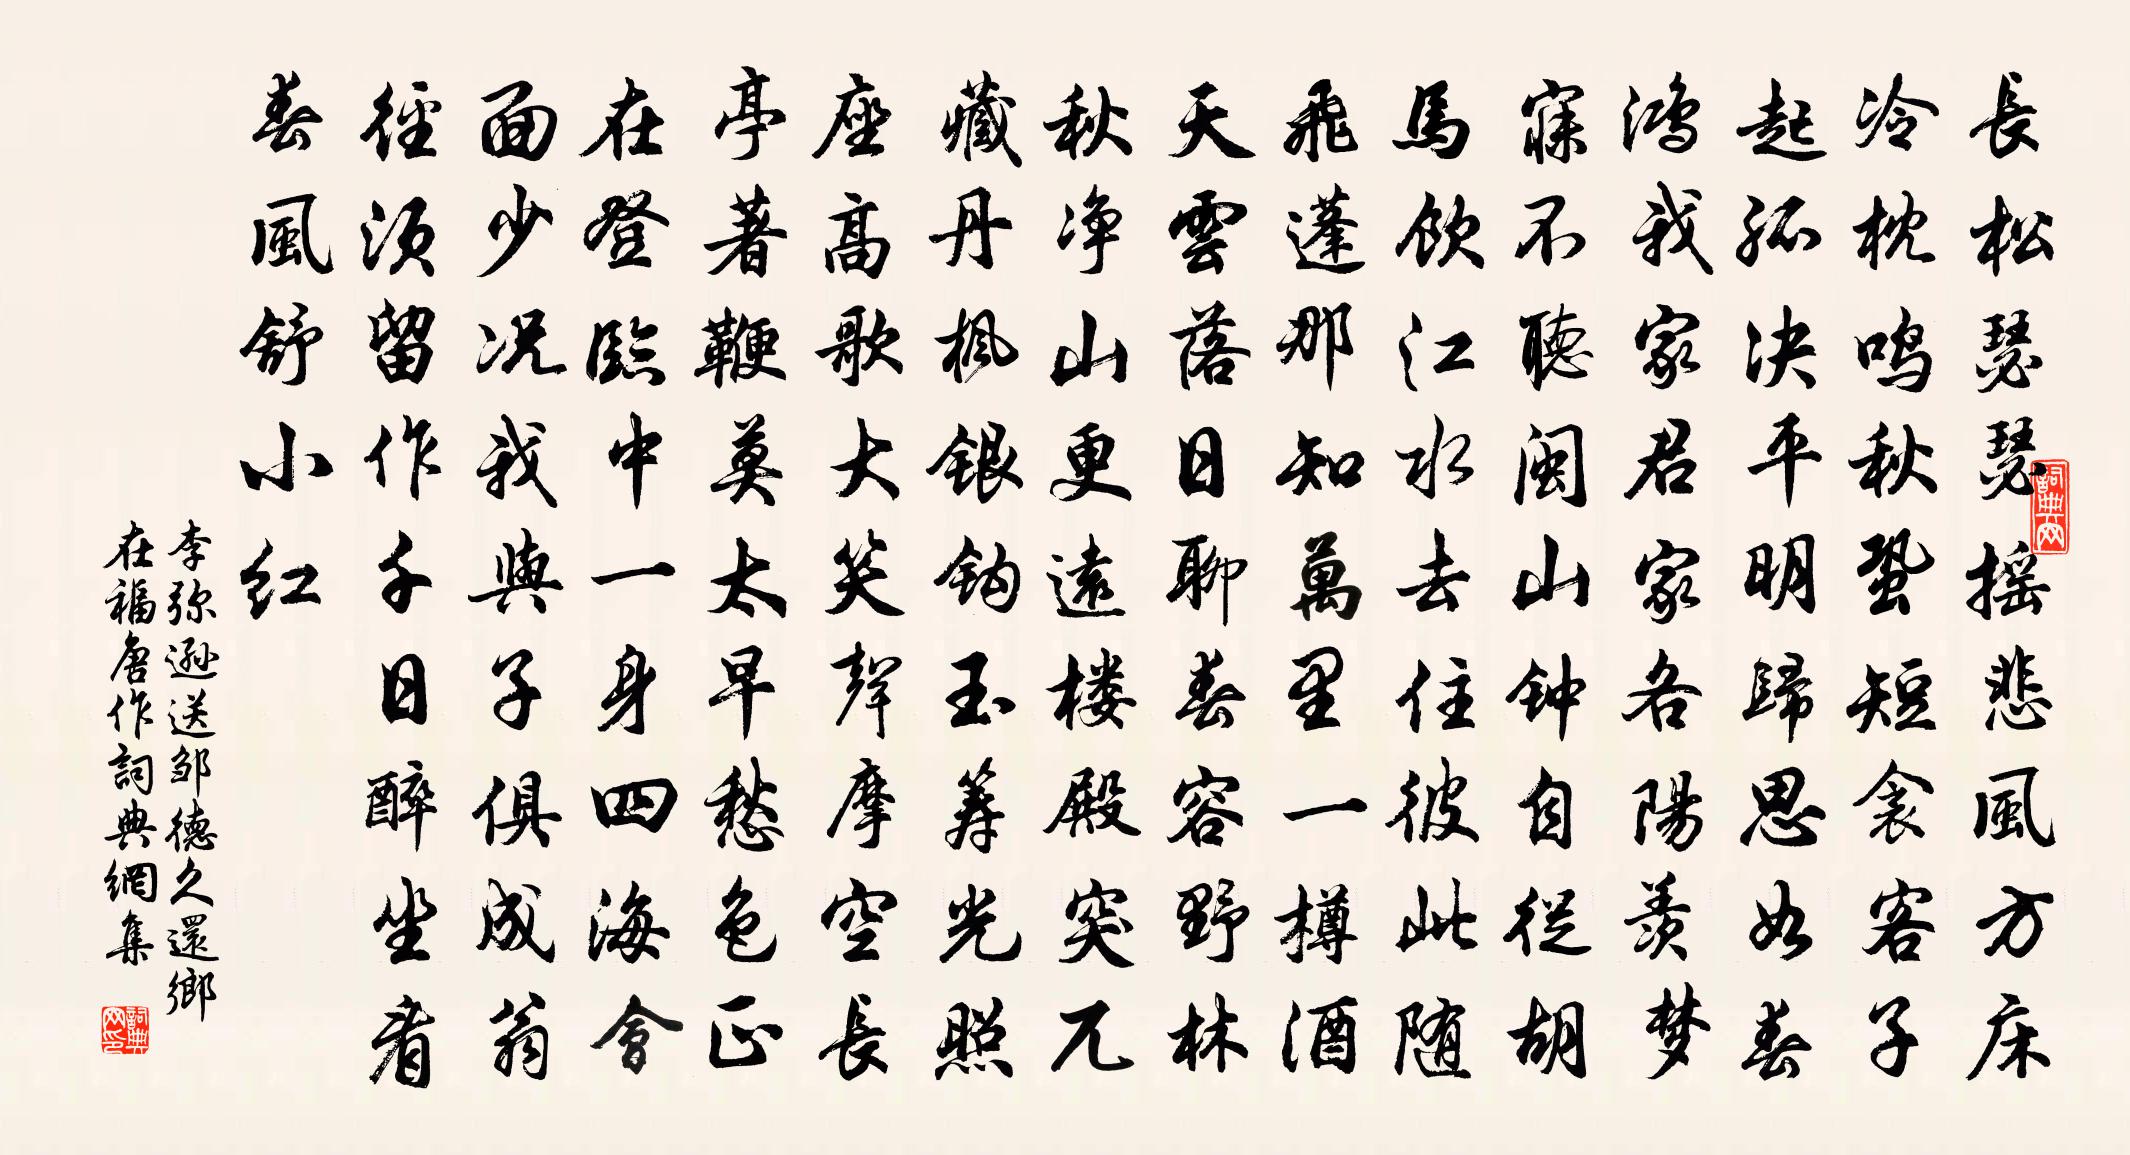 長松瑟瑟摇悲風方床
冷枕鸣秋蛩短衾客子
起孤决平明歸思如春
鸿我家君家各陽羡梦
寐不聽闽山钟自從胡
馬飲江水去住彼此随
飛蓬那知萬里一樽酒
天雲落日聊春容野林
秋净山更遠楼殿突兀
藏丹枫银钩玉筹光照
座高歌大笑聲摩空長
亭著鞭莫太早愁色正
在登臨中一身四海會
面少况我與子俱成翁
徑须留作千日醉坐看
春風舒小红
李弥遜送邹德久還鄉
在福唐作詞典網集
詞典网
詞典网印